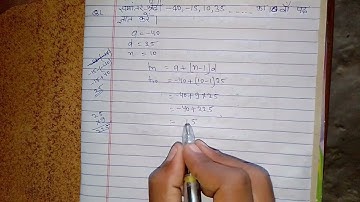 Q1 समान्तर श्रेढ़ी -40, -15, 10, 35 ..... का 10 वाँ पद
ज्ञात करें।
a = -40
d = 25
n = 10
tn = a + (n-1)d
t10 = -40 + (10-1)25
= -40 + 9×25
= -40 + 225